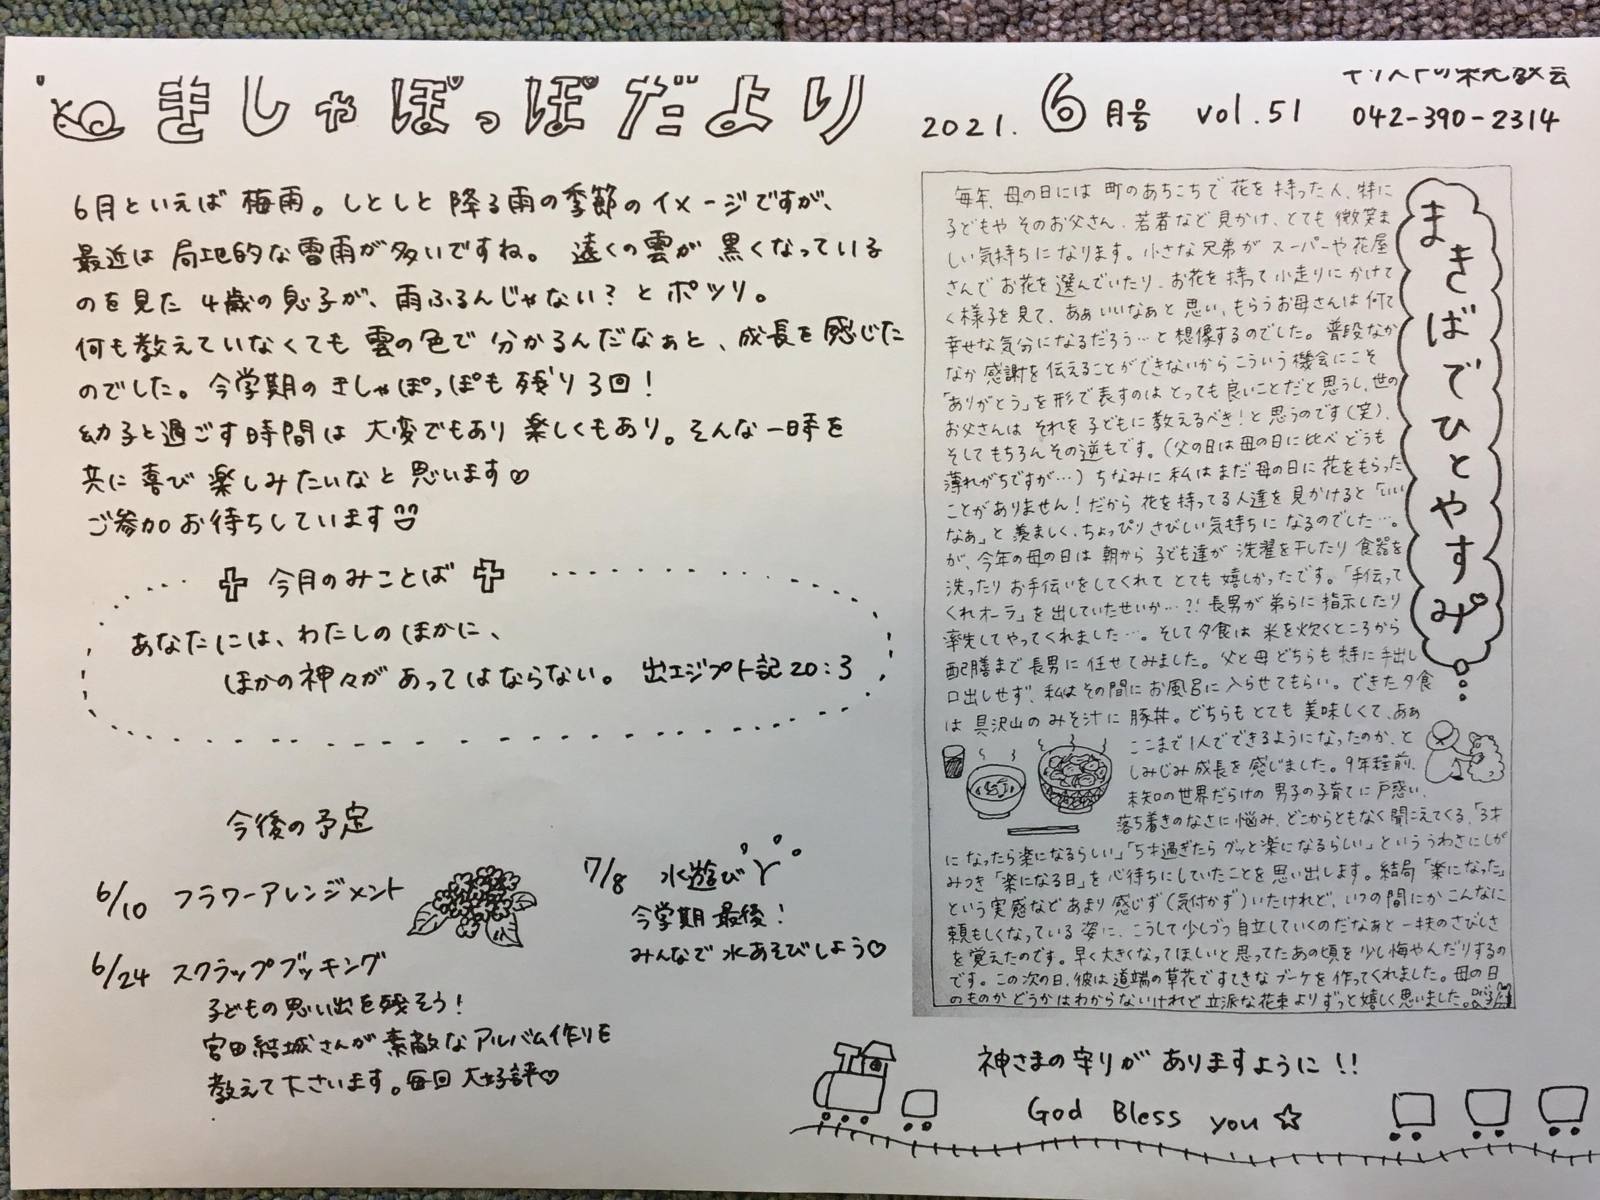 きしゃぽっぽだより
2021. 6月号 vol.51
042-390-2314
6月といえば 梅雨。しとしと 降る雨の季節のイメージですが、
最近は 局地的な雷雨が多いですね。 遠くの雲が 黒くなっている
のを見た 4歳の息子が、雨ふるんじゃない？とポツリ。
何も教えていなくても 雲の色で 分かるんだなぁと、成長を感じた
のでした。今学期のきしゃぽっぽも 残り3回！
幼子と過ごす時間は 大変でもあり 楽しくもあり。そんな一時を
共に喜び楽しみたいなと思います♡
ご参加お待ちしています
今月のみことば
あなたには、わたしのほかに、
ほかの神々があってはならない。 出エジプト記20:3
今後の予定
6/10 フラワーアレンジメント
6/24 スクラップブッキング
子どもの思い出を残そう！
宮田結城さんが素敵なアルバム作りを
教えて下さいます。毎回大好評♡
7/8 水遊び
今学期最後！
みんなで水あそびしよう♡
まきばでひとやすみ
毎年、母の日には 町のあちこちで 花を 持った人、特に
子どもや そのお父さん、若者など見かけ、とても 微笑ま
しい気持ちになります。小さな兄弟が スーパーや花屋
さんで お花を選んでいたり、お花を持って小走りにかけて
く様子を見て、あぁいいなぁと思い、もらうお母さんは何て
幸せな気分になるだろう…と想像するのでした。普段なか
なか感謝を伝えることができないから こういう機会にこそ
「ありがとう」を形で表すのは とっても良いことだと思うし、世の
お父さんは それを子どもに教えるべき！と思うのです(笑)、
そしてもちろんその逆もです。(父の日は母の日に比べどうも
薄れがちですが…) ちなみに私はまだ母の日に花をもらった
ことがありません！だから 花を持ってる人達を見かけると「いい
なぁ」と羨ましく、ちょっぴりさびしい気持ちに なるのでした…。
が、今年の母の日は 朝から 子ども達が 洗濯を干したり 食器を
洗ったりお手伝いをしてくれて とても嬉しかったです。「手伝って
くれオーラ」を出していたせいか…?! 長男が弟らに指示したり
率先してやってくれました…。そして夕食は 米を炊くところから
配膳まで長男に任せてみました。父と母どちらも特に手出し
口出しせず、私はその間にお風呂に入らせてもらい。できた夕食
は 具沢山のみそ汁に豚丼。どちらもとても美味しくて、あぁ
ここまで1人でできるようになったのか、と
しみじみ成長を感じました。9年程前、
未知の世界だらけの男子の子育てに戸惑い、
落ち着きのなさに悩み、どこからともなく聞こえてくる、「3才
になったら楽になるらしい」「5才過ぎたらグッと楽になるらしい」といううわさにしが
みつき「楽になる日」を心待ちにしていたことを思い出します。結局「楽になった」
という実感など あまり感じず(気付かず)いたけれど、いつの間にかこんなに
頼もしくなっている姿に、こうして少しづつ自立していくのだなぁと一抹のさびしさ
を覚えたのです。早く大きくなってほしいと思ってたあの頃を少し悔やんだりするの
です。この次の日、彼は道端の草花ですてきなブーケを作ってくれました。母の日
のものかどうかはわからないけれど立派な花束よりずっと嬉しく思いました。
神さまの守りが ありますように!!
God Bless you☆